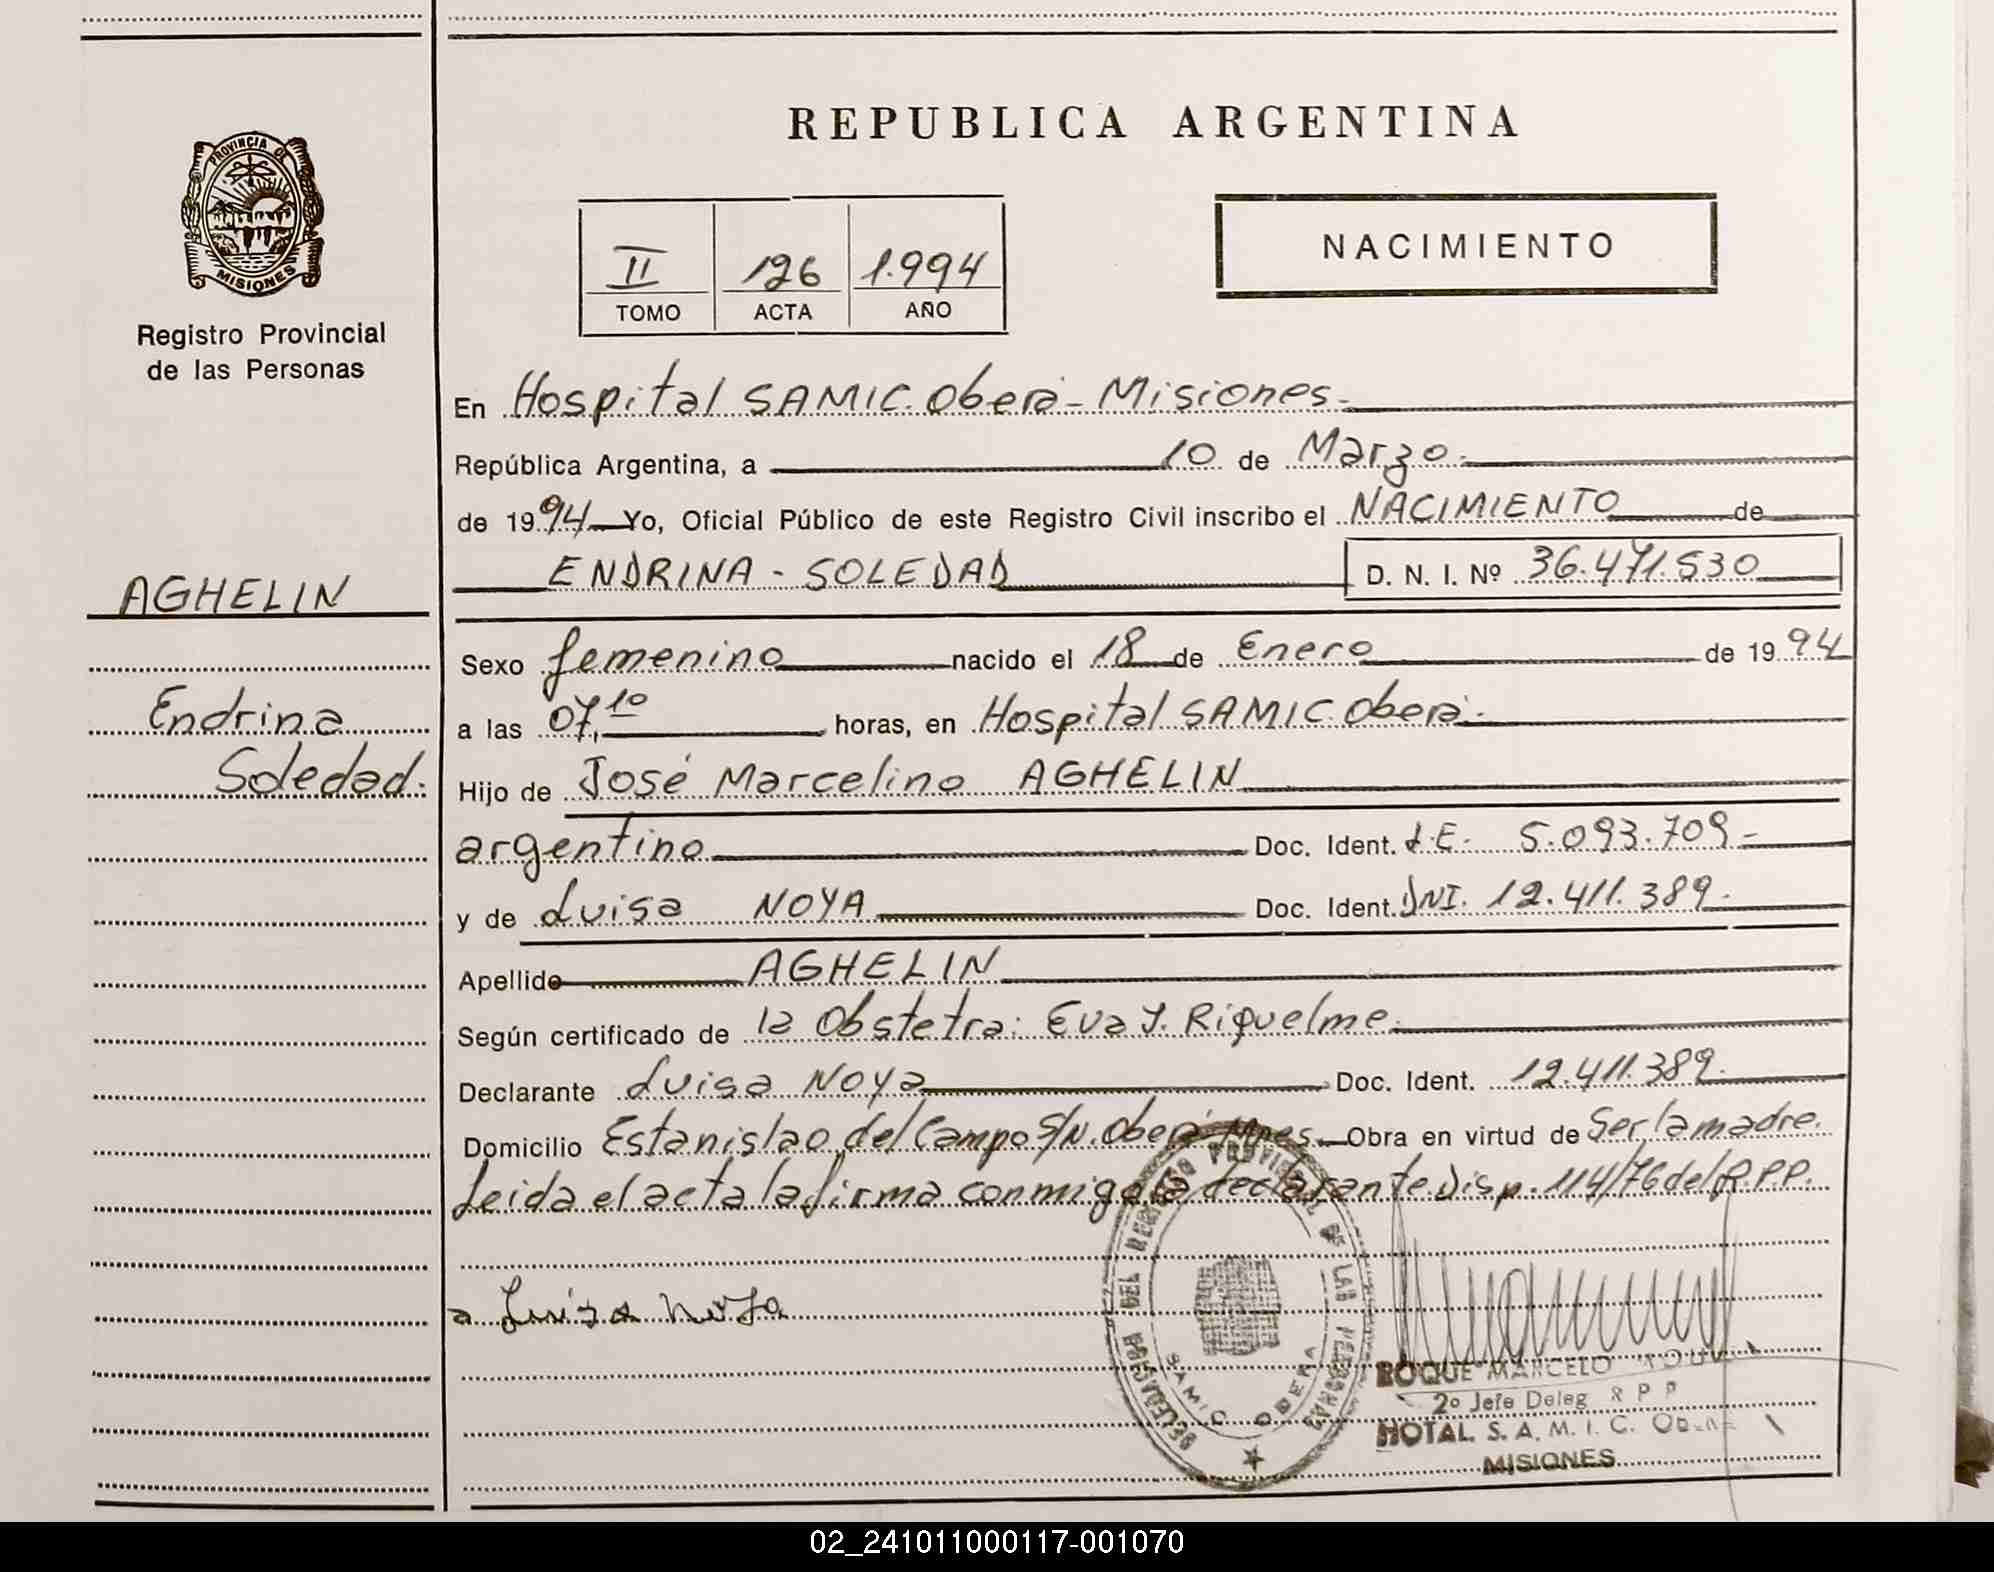 REPUBLICA ARGENTINA
PROVINCIA DE
MISIONES
Registro Provincial
de las Personas
II 126 1.994
TOMO ACTA AÑO
NACIMIENTO
En Hospital SAMIC. Oberá - Misiones.
República Argentina, a 10 de Marzo.
de 1994 Yo, Oficial Público de este Registro Civil inscribo el NACIMIENTO de
ENDRINA - SOLEDAD D. N. I. Nº 36.471.530
AGHELIN
Endrina
Soledad.
Sexo femenino nacido el 18 de Enero de 1994
a las 07,10 horas, en Hospital SAMIC. Oberá.
Hijo de José Marcelino AGHELIN
argentino Doc. Ident. L.E. 5.093.709.-
y de Luisa NOYA Doc. Ident. DNI. 12.411.389.
Apellido AGHELIN
Según certificado de la Obstetra: Eva J. Riquelme.
Declarante Luisa Noya Doc. Ident. 12.411.389.
Domicilio Estanislao del Campo S/N. Oberá Mnes. Obra en virtud de Ser la madre.
Leida el acta la firma conmigo la declarante. Disp. 114/76 del R.P.P.
Luisa Noya
DELEGACION DEL REGISTRO PROVINCIAL DE LAS PERSONAS
SAMIC OBERA
ROQUE MARCELO
2º Jefe Deleg R P P
HOTAL S. A. M. I. C. OBERA
MISIONES
02_241011000117-001070